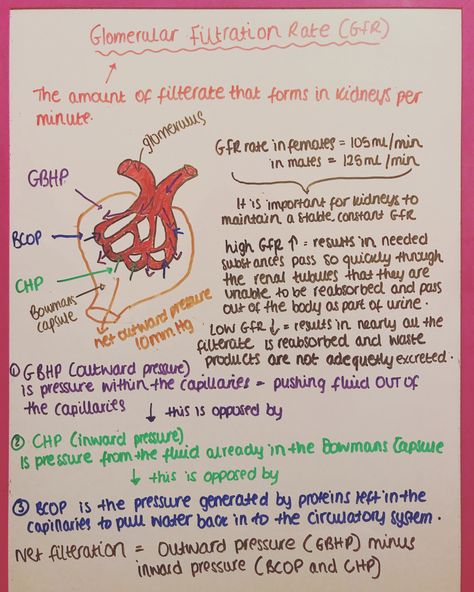 Glomerular Filtration Rate (GFR)
The amount of filterate that forms in kidneys per
minute.
glomerulus
GBHP
BCOP
CHP
Bowmans
capsule
net outward pressure
10mmHg
GFR rate in females = 105ml/min
in males = 125ml/min
It is important for kidneys to
maintain a stable constant GFR
high GFR ↑ = results in needed
substances pass so quickly through
the renal tubules that they are
unable to be reabsorbed and pass
out of the body as part of urine.
Low GFR ↓ = results in nearly all the
filterate is reabsorbed and waste
products are not adequetly excreted.
① GBHP (outward pressure)
is pressure within the capillaries = pushing fluid OUT OF
the capillaries
↓ this is opposed by
② CHP (inward pressure)
Is pressure from the fluid already in the Bowmans Capsule
↓ this is opposed by
③ BCOP is the pressure generated by proteins left in the
capillaries to pull water back in to the circulatory system.
Net filtration = outward pressure (GBHP) minus
inward pressure (BCOP and CHP)